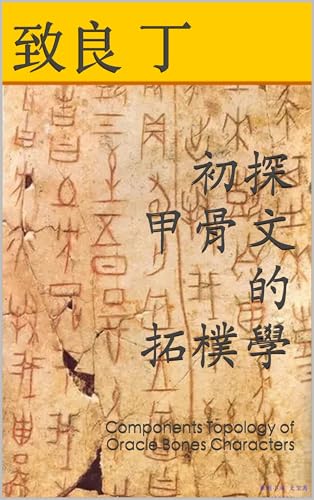 致良 丁
初探
甲骨文
的
拓樸學
Components Topology of
Oracle Bones Characters